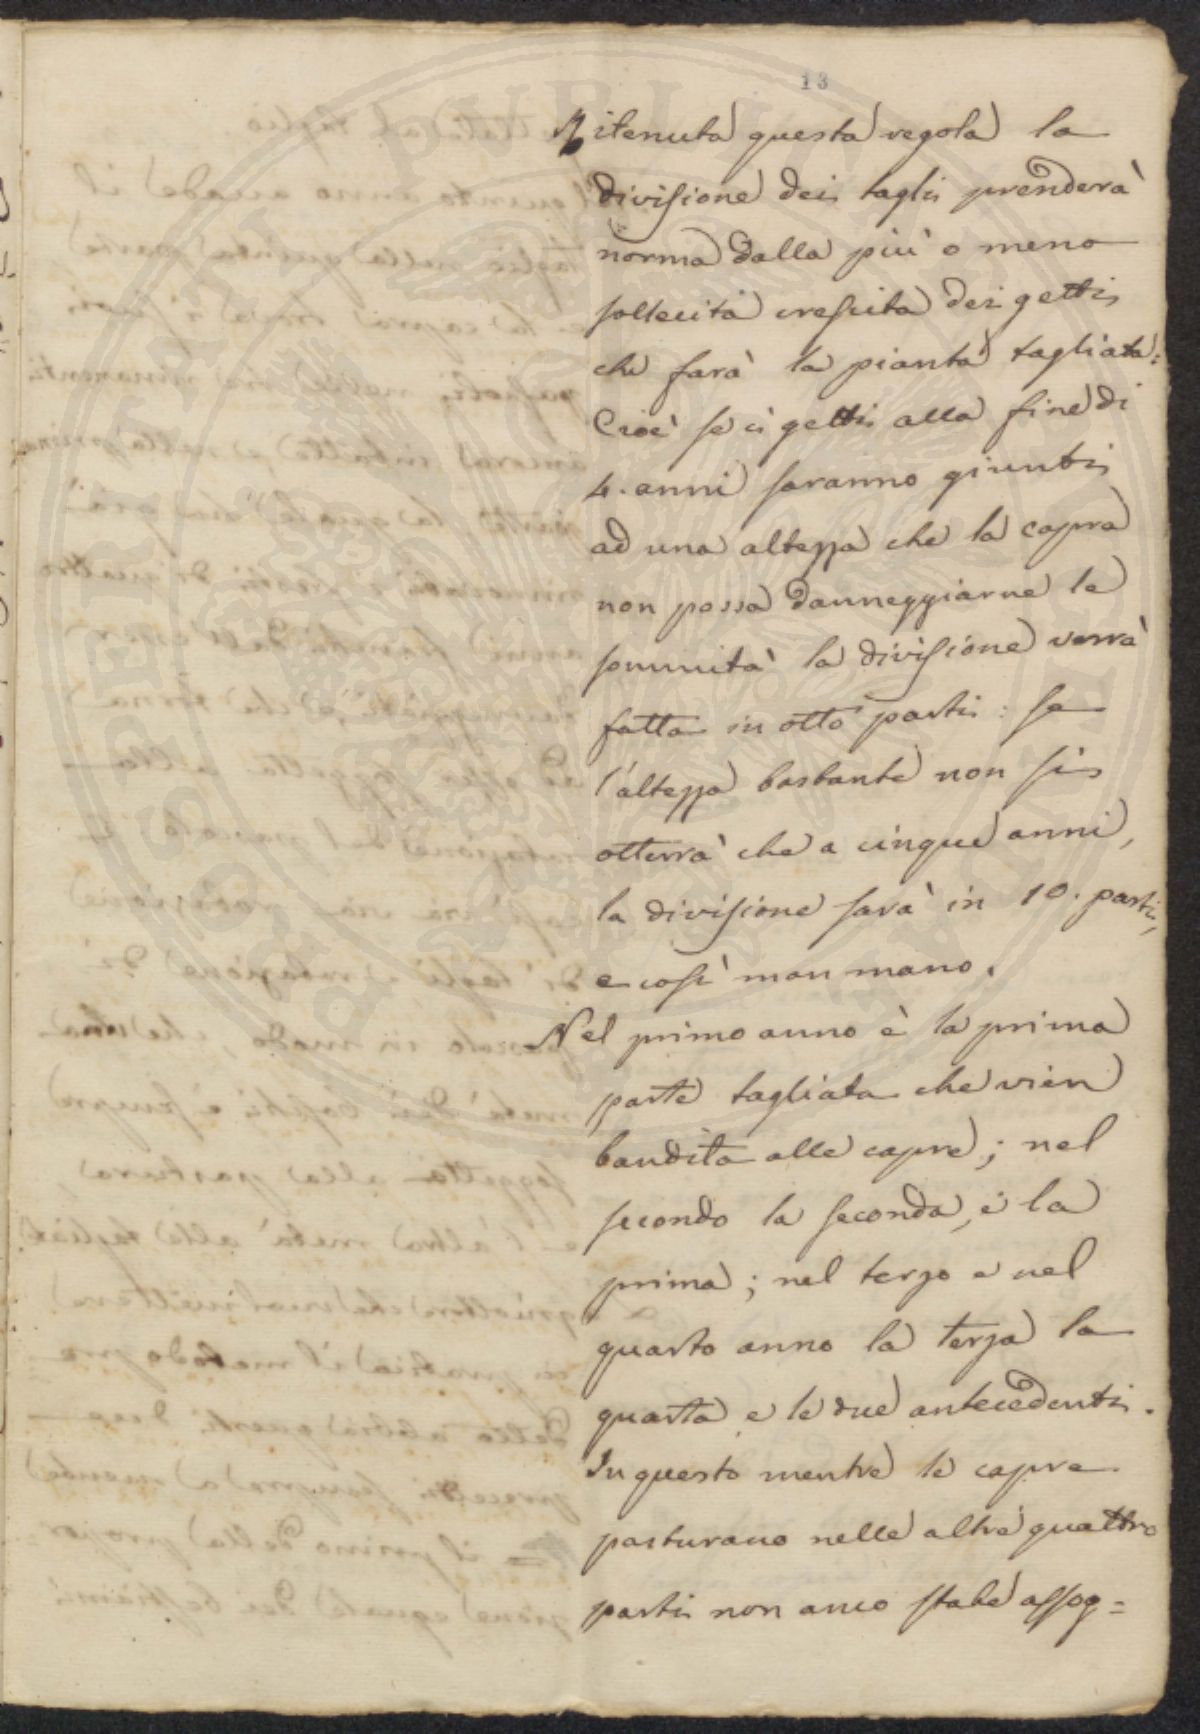 13
Ritenuta questa regola la
divisione dei tagli prenderà
norma dalla più o meno
sollecita crescita dei getti
che farà la pianta tagliata:
Cioè se i getti alla fine di
4. anni saranno giunti
ad una altezza che la capra
non possa danneggiarne le
sommità la divisione verrà
fatta in otto parti: se
l'altezza bastante non si
otterrà che a cinque anni,
la divisione sarà in 10. parti,
e così man mano.
Nel primo anno è la prima
parte tagliata che vien
bandita alle capre; nel
secondo la seconda, e la
prima; nel terzo e nel
quarto anno la terza la
quarta e le due antecedenti.
In questo mentre le capre
pasturano nelle altre quattro
parti non anco state assog=